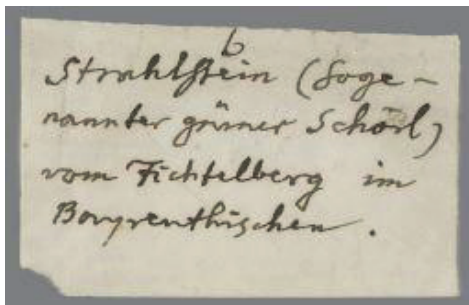 b
Strahlstein (Soge-
nannter grüner Schörl)
vom Fichtelberg im
Bayreuthischen.